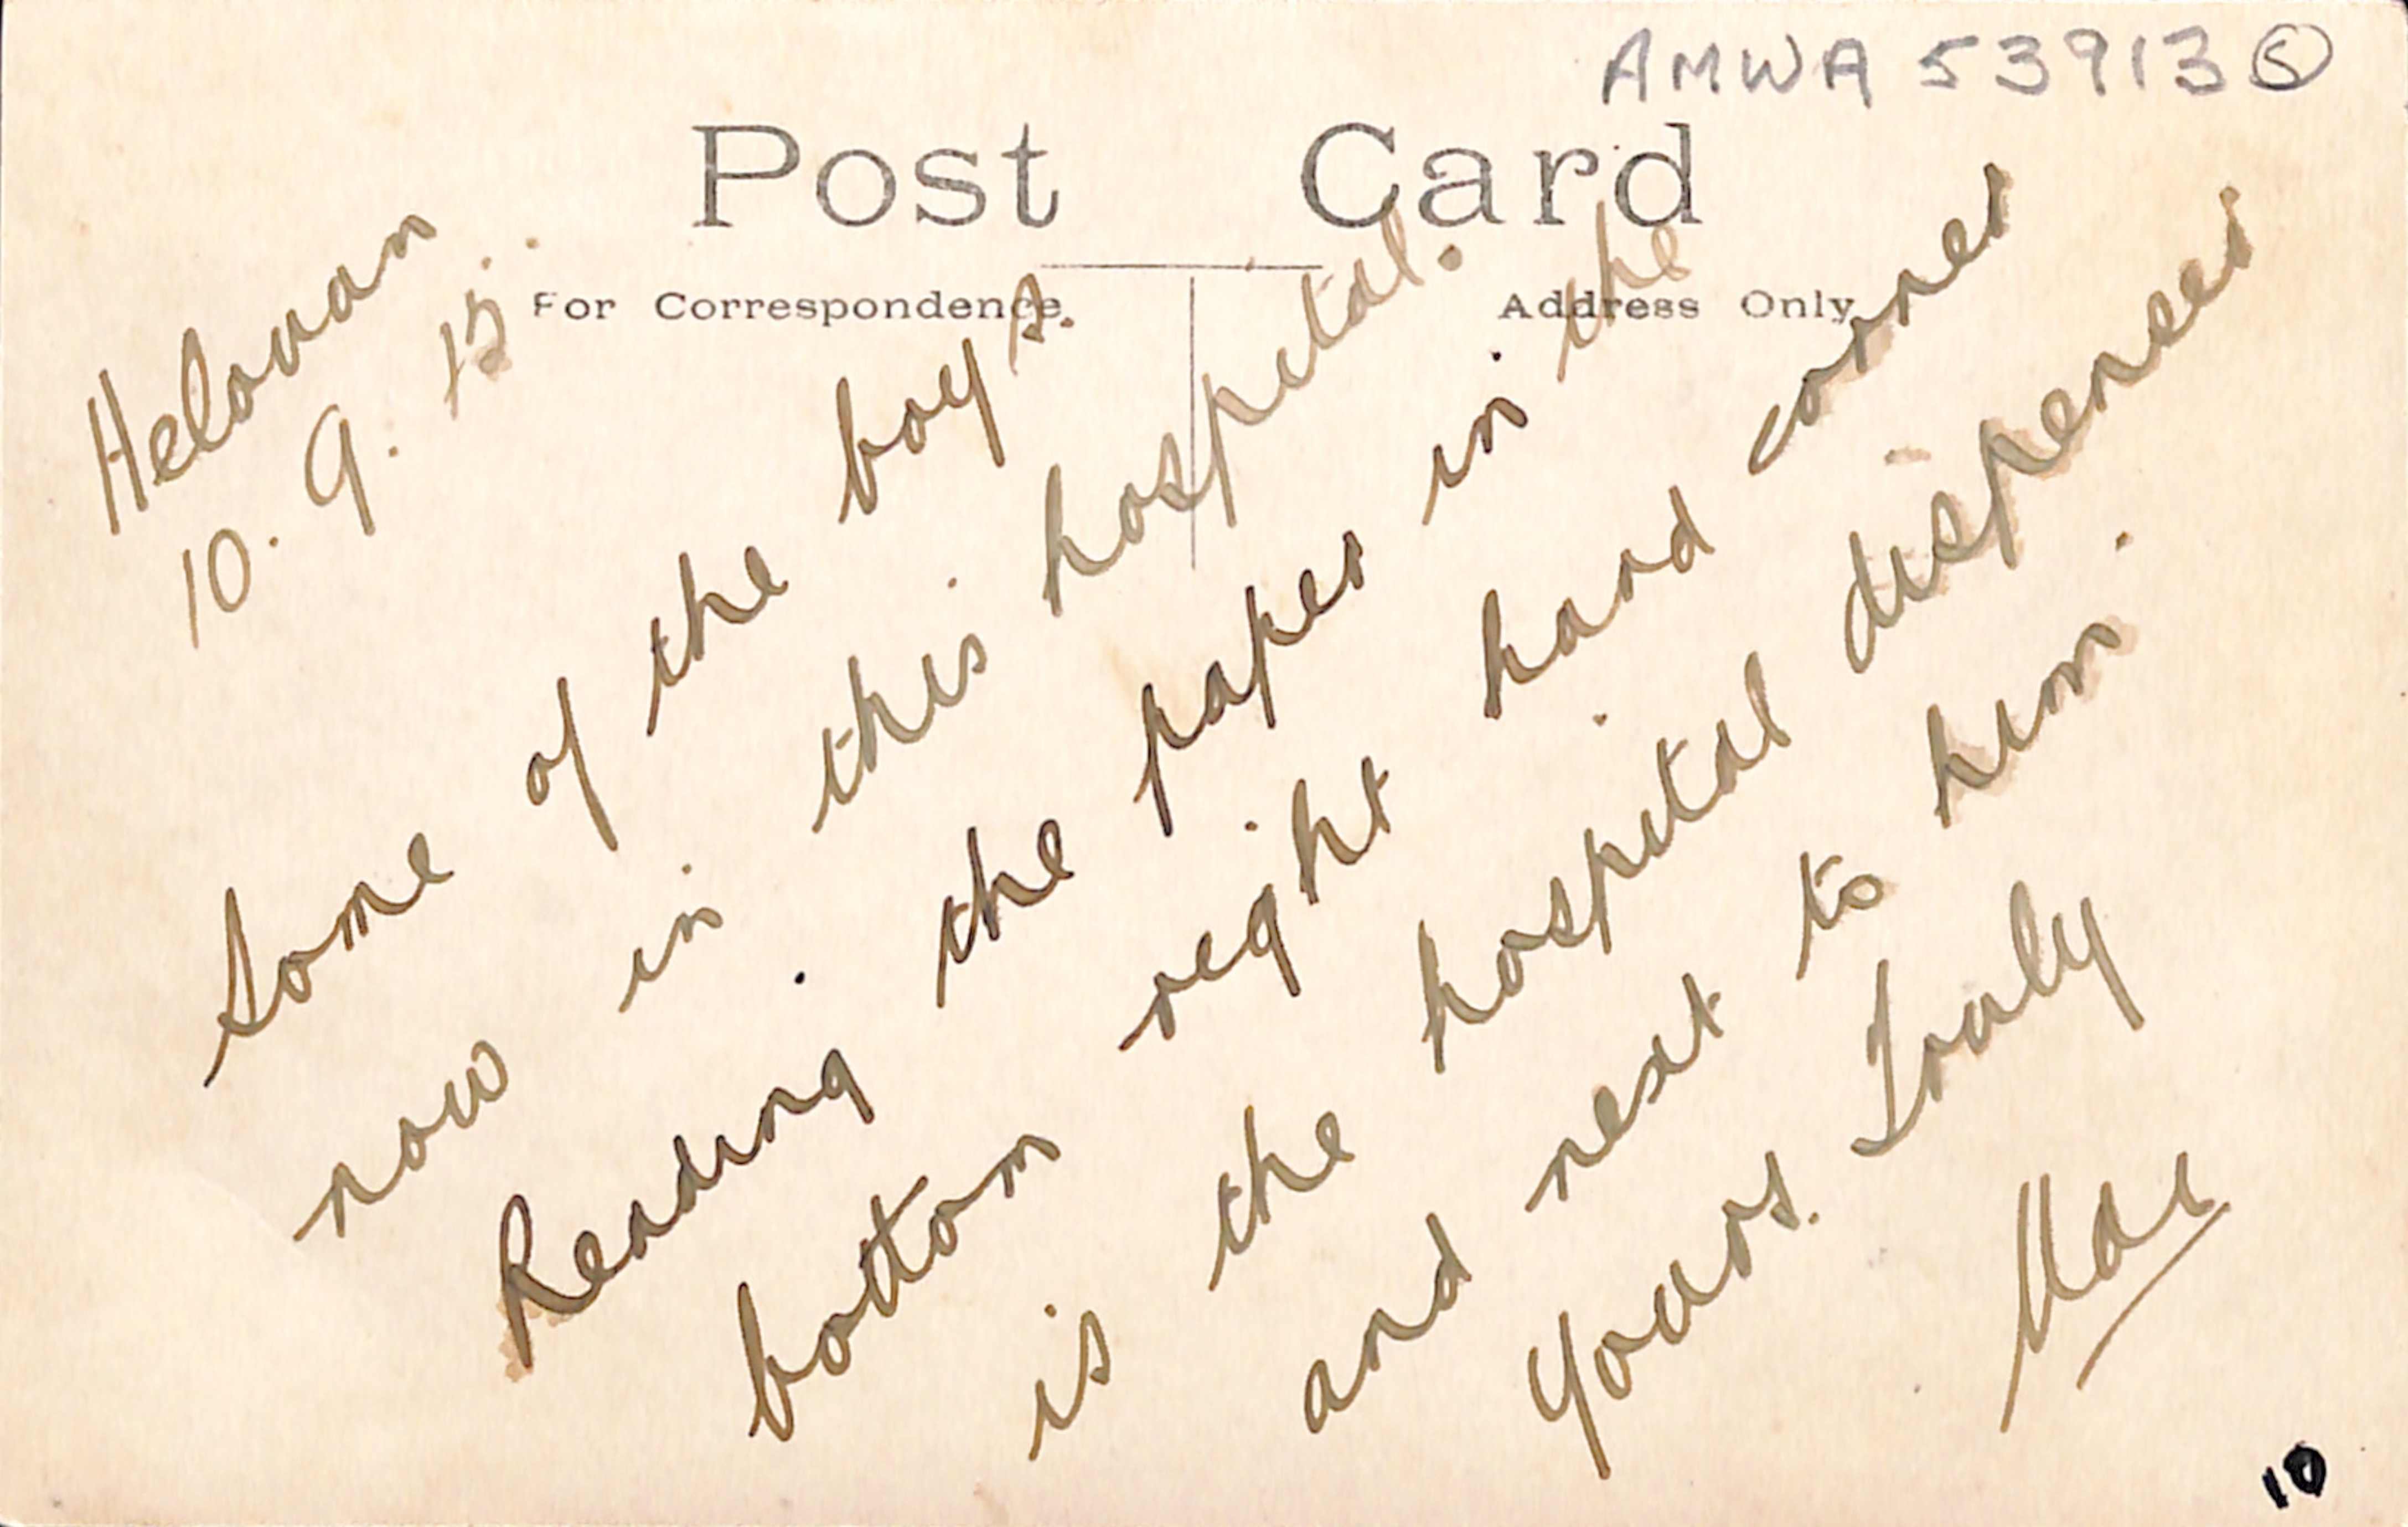 AMWA 53913 5
Post Card
For Correspondence. Address Only.
Helouan
10. 9. 15.
Some of the boys.
now in this hospital.
Reading the paper in the
bottom right hand corner
is the hospital dispenser
and next to him.
Yours. Truly
Mac
10